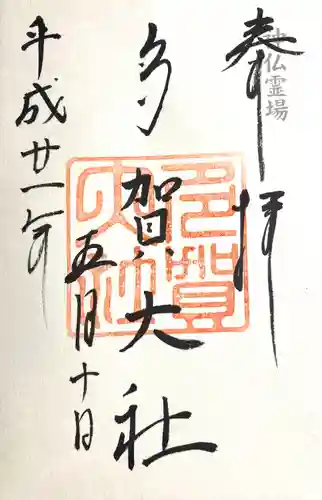 奉拝
神仏霊場
多賀大社
多賀大社
平成廿一年
五月十日